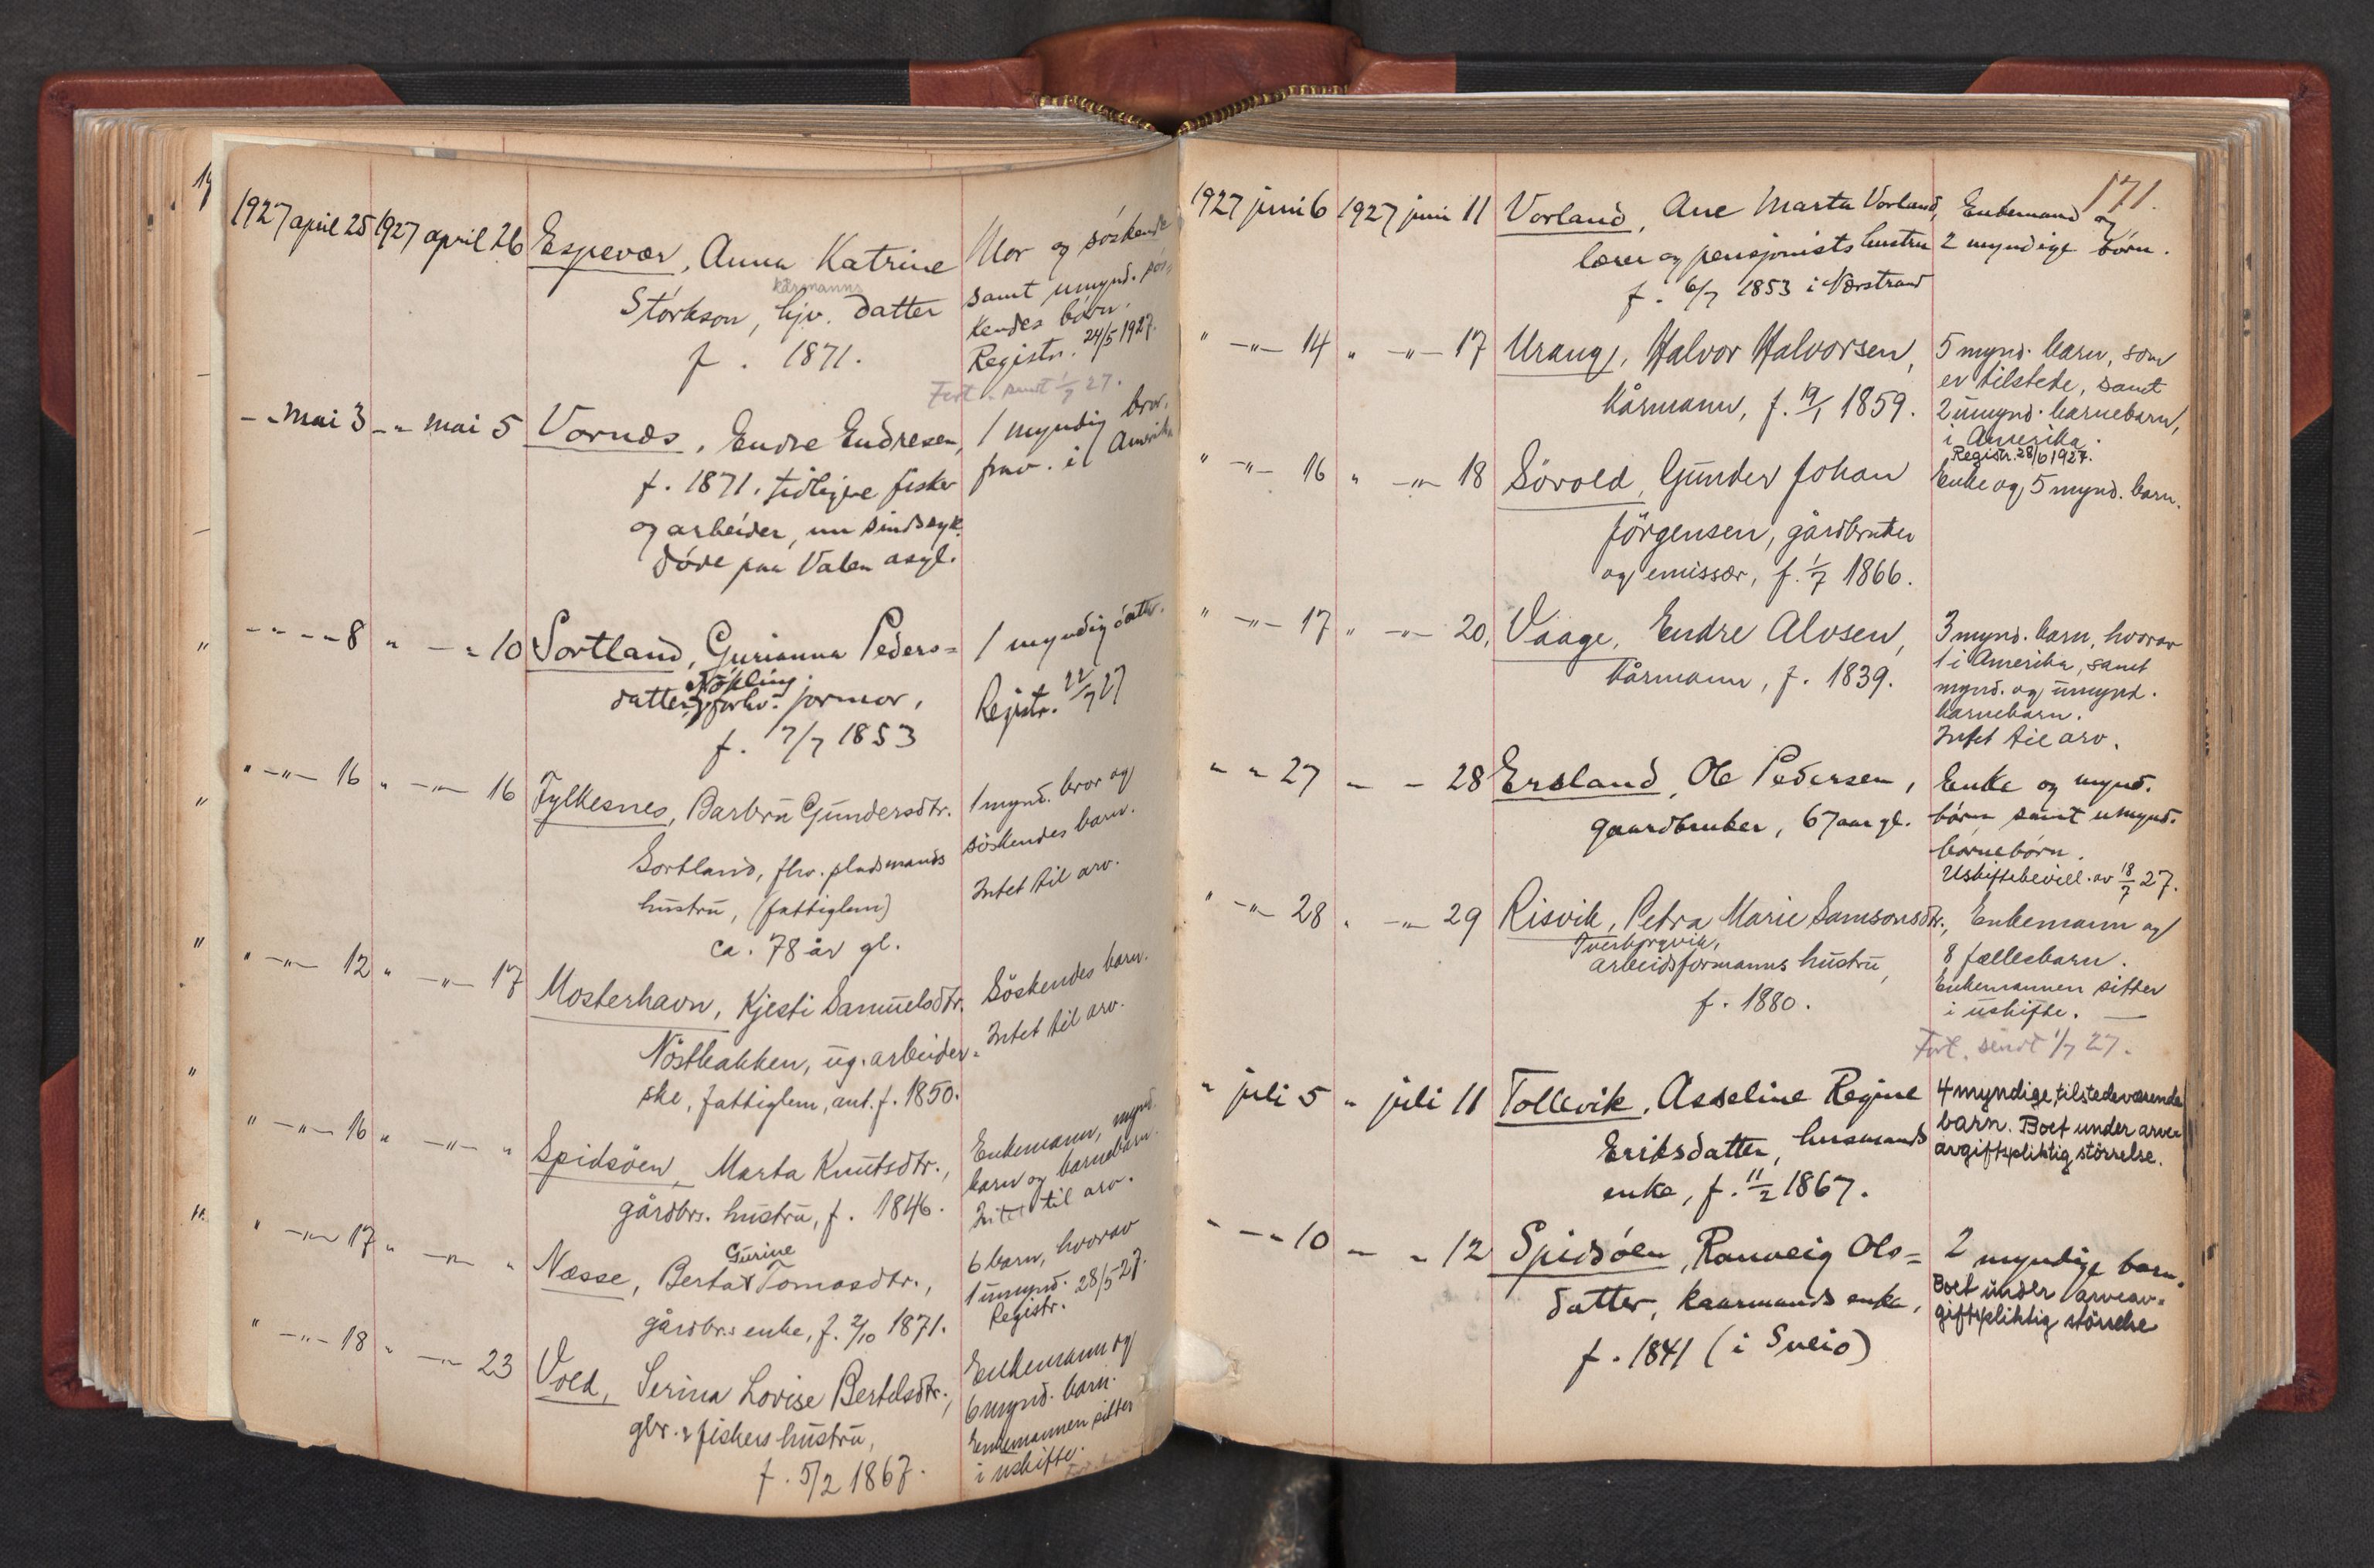 1927 april 25 1927 april 26 Espevær, Anna Katrine Mor og söskende
kårmanns
Störkson, hjv. datter samt umynd. sös-
f. 1871. kendes börn.
Registr. 24/5 1927.
sendt 1/7 27.
-„- mai 3 -„- mai 5 Vornæs, Endre Endresen, 1 myndig bror,
f. 1871. tidligere fisker frav. i Amerika
og arbeider, nu sindssyk.
döde paa Valen asyl.
- „ - - 8 „ - „ 10 Sortland, Gurianna Peders= 1 myndig datter.
Nökling
datter, forhv. jormor, Registr. 22/7 27
f. 7/7 1853
„ -„- 16 „ -„- 16 Fylkesnes, Barbru Gundersdtr. 1 mynd. bror og
Sortland, fhv. pladsmands söskendes barn.
hustru, (fattiglem) Intet til arv.
ca. 78 år gl.
„ -„- 12 „ -„- 17 Mosterhavn, Kjesti Samuelsdtr. Söskendes barn.
Nöstbakken, ug. arbeider- Intet til arv.
ske, fattiglem, ant. f. 1850.
„ -„- 16 „ -„- „ Spidsöen, Marta Knutsdtr., Enkemann, mynd.
gårdbrs. hustru, f. 1846. barn og barnebarn.
Intet til arv.
„ -„- 17 „ -„- „ Næsse, Berta Gurine Tomasdtr., 6 barn, hvorav
gårdbr.s enke, f. 2/10 1871. 1 umynd.
Registr. 28/5 27.
„ -„- 18 „ -„- 23 Vold, Serina Lovise Bertelsdtr., Enkemann og
gbr. & fiskers hustru, 6 mynd. barn.
f. 5/2 1867. Enkemannen sitter
i uskifte.
171.
1927 juni 6 1927 juni 11 Vorland, Ane Marta Vorland, Enkemand og
lærer og pensjonists hustru 2 myndige börn.
f. 6/7 1853 i Nærstrand
„ -„- 14 „ -„- 17 Urang, Halvor Halvorsen, 5 mynd. barn, som
er tilstede, samt
kårmann, f. 19/1 1859. 2 umynd. barnebarn,
i Amerika.
Registr. 28/6 1927.
„ -„- 16 „ -„- 18 Sörvold, Gunder Johan Enke og 5 mynd. barn.
Jörgensen, gårdbruker
og emissær, f. 1/7 1866.
„ -„- 17 „ -„- 20, Vaage, Endre Alvsen, 3 mynd. barn, hvorav
1 i Amerika, samt
kårmann, f. 1839. mynd. og umynd.
barnebarn.
Intet til arv.
„ „ 27 - - 28 Ersland, Ole Pedersen, Enke og mynd.
gaardbruker, 67 aar gl. börn samt umynd.
barnebörn.
Uskiftebevill. av 18/7 27.
„ -„- 28 „ -„- 29 Risvik, Petra Marie Samsonsdtr., Enkemann og
Tverborgvik,
arbeidsformanns hustru, 8 fællesbarn.
Enkemannen sitter
f. 1880. i uskifte. —
Fort. sendt 1/7 27.
„ juli 5 „ juli 11 Tollevik, Asseline Regine 4 myndige, tilstedeværende
Eriksdatter, husmands barn. Boet under arve=
avgiftspliktig störrelse.
enke, f. 11/2 1867.
- - „ 10 - „ 12 Spidsöen, Ranveig Ols= 2 myndige barn.
datter, kaarmands enke, Boet under arveav=
giftspliktig störrelse
f. 1841 (i Sveio)